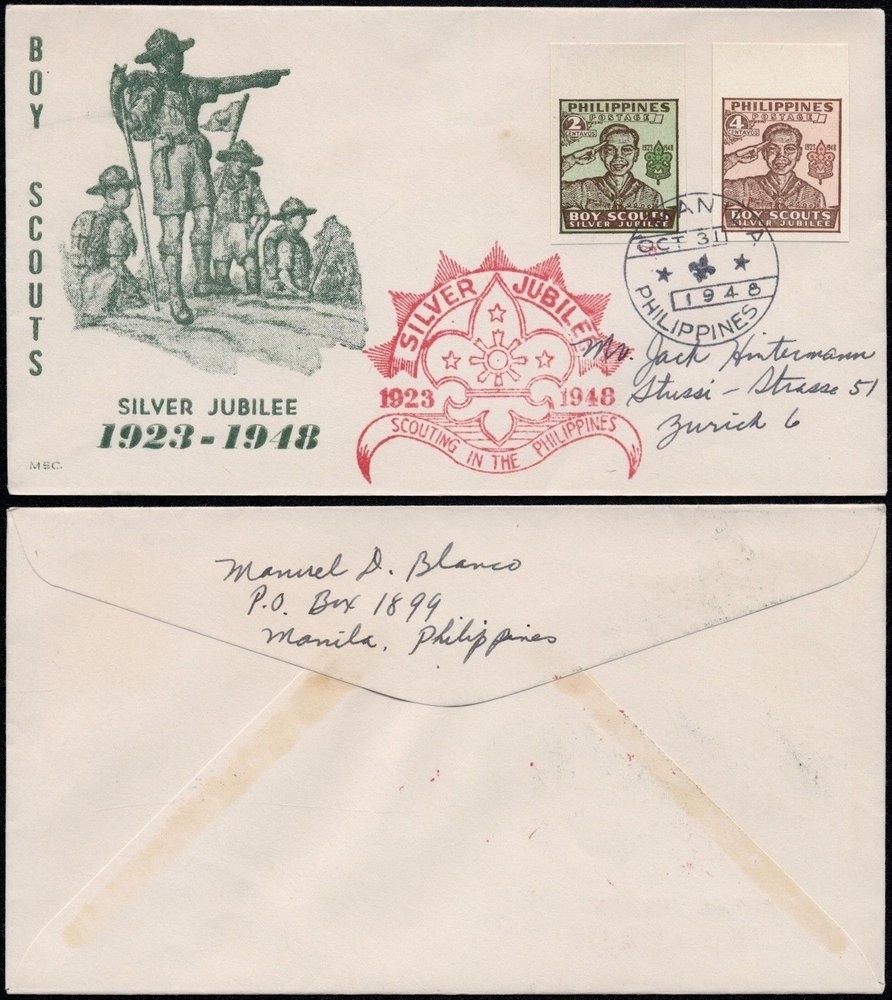 BOY SCOUTS
SILVER JUBILEE
1923-1948
MSC.
PHILIPPINES
POSTAGE
2
CENTAVOS
1923 1948
BOY SCOUTS
SILVER JUBILEE
PHILIPPINES
POSTAGE
4
CENTAVOS
1923 1948
BOY SCOUTS
SILVER JUBILEE
MANILA
OCT 31
1948
PHILIPPINES
SILVER JUBILEE
1923 1948
SCOUTING IN THE PHILIPPINES
Mr. Jack Hintermann
Stussi-Strasse 51
Zurich 6
Manuel D. Blanco
P.O. Box 1899
Manila, Philippines